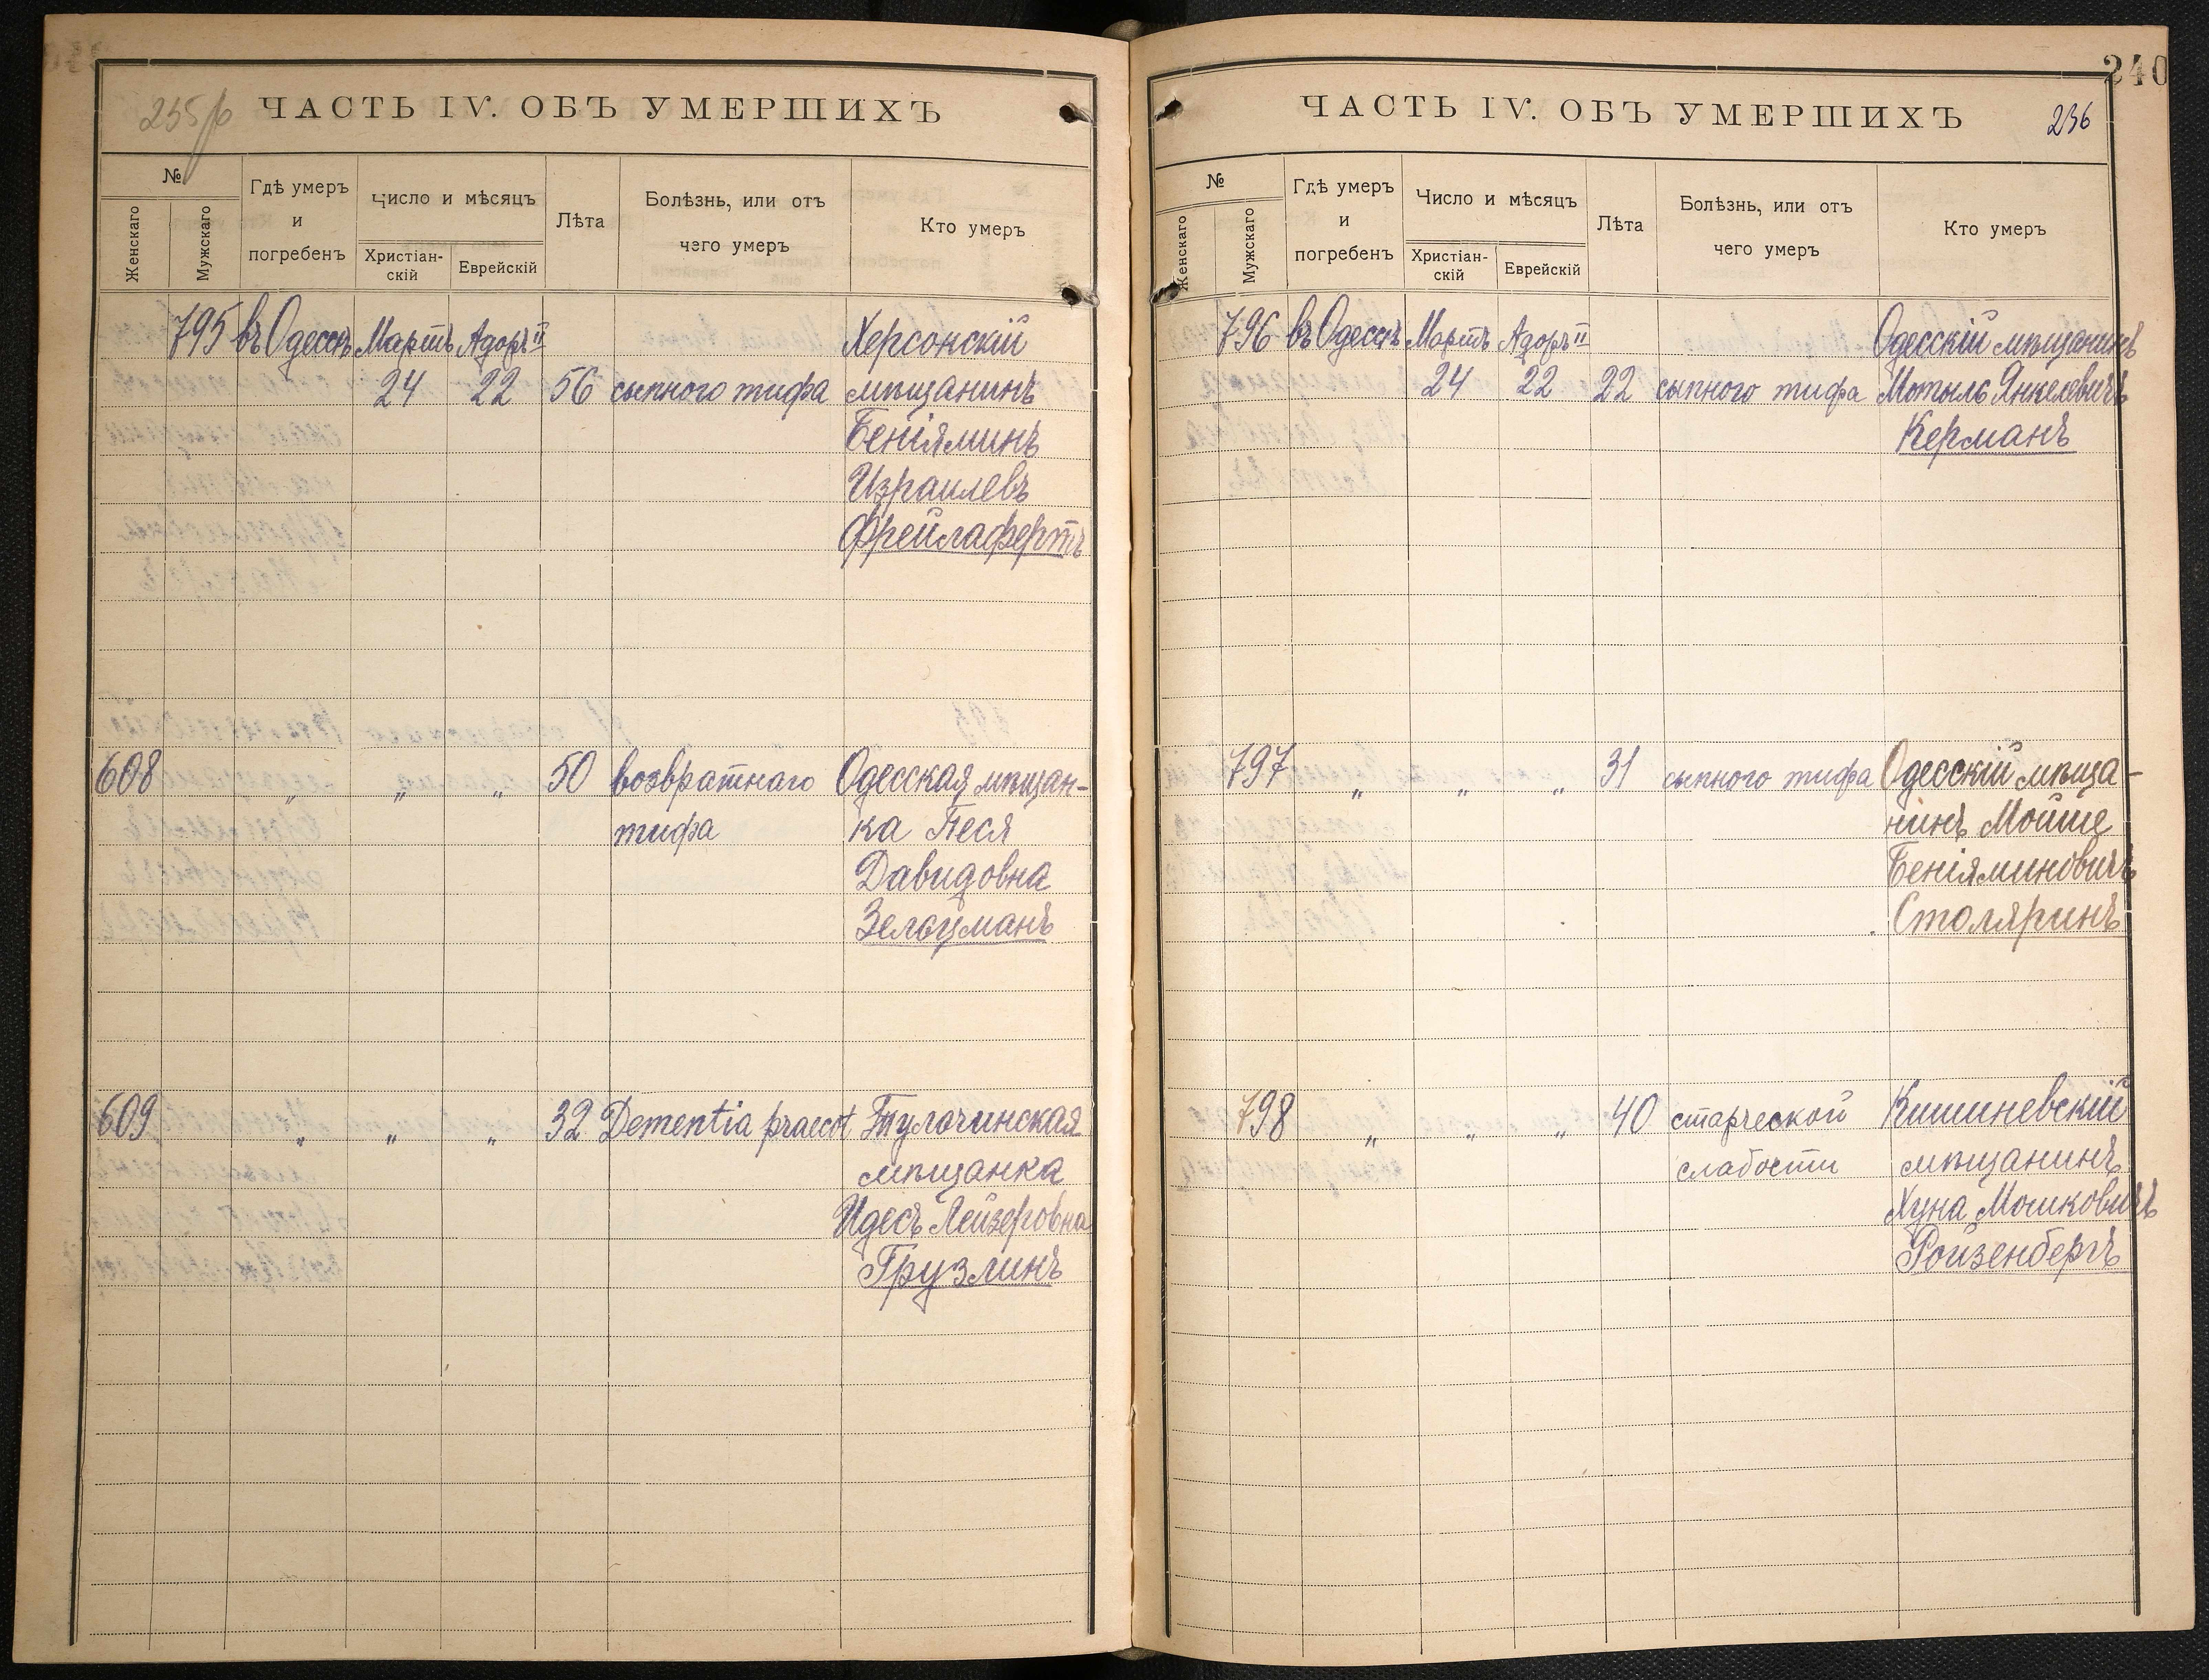 235об ЧАСТЬ IV. ОБЪ УМЕРШИХЪ
№
Женскаго
Мужскаго
Гдѣ умеръ
и
погребенъ
Число и мѣсяцъ
Христіан-
скій
Еврейскій
Лѣта
Болѣзнь, или отъ
чего умеръ
Кто умеръ
795 въ Одессѣ Мартъ Адоръ II Херсонскій
24 22 56 сыпного тифа мѣщанинъ
Беніяминъ
Израилевъ
Фрейлафертъ
608 „ „ „ 50 возвратнаго Одесская мѣщан-
тифа ка Песя
Давидовна
Зельцманъ
609 „ „ „ 32 Dementia praecot Тулочинская
мѣщанка
Идесъ Лейзеровна
Грузлинъ
240
ЧАСТЬ IV. ОБЪ УМЕРШИХЪ 236
№
Женскаго
Мужскаго
Гдѣ умеръ
и
погребенъ
Число и мѣсяцъ
Христіан-
скій
Еврейскій
Лѣта
Болѣзнь, или отъ
чего умеръ
Кто умеръ
796 въ Одессѣ Мартъ Адоръ II Одесскій мѣщанинъ
24 22 22 сыпного тифа Мотыль Янкелевичъ
Керманъ
797 „ „ „ 31 сыпного тифа Одесскій мѣща-
нинъ Мойше
Беніяминовичъ
Столяринъ
798 „ „ „ 40 старческой Кишиневскій
слабости мѣщанинъ
Хуна Мошковичъ
Ройзенбергъ